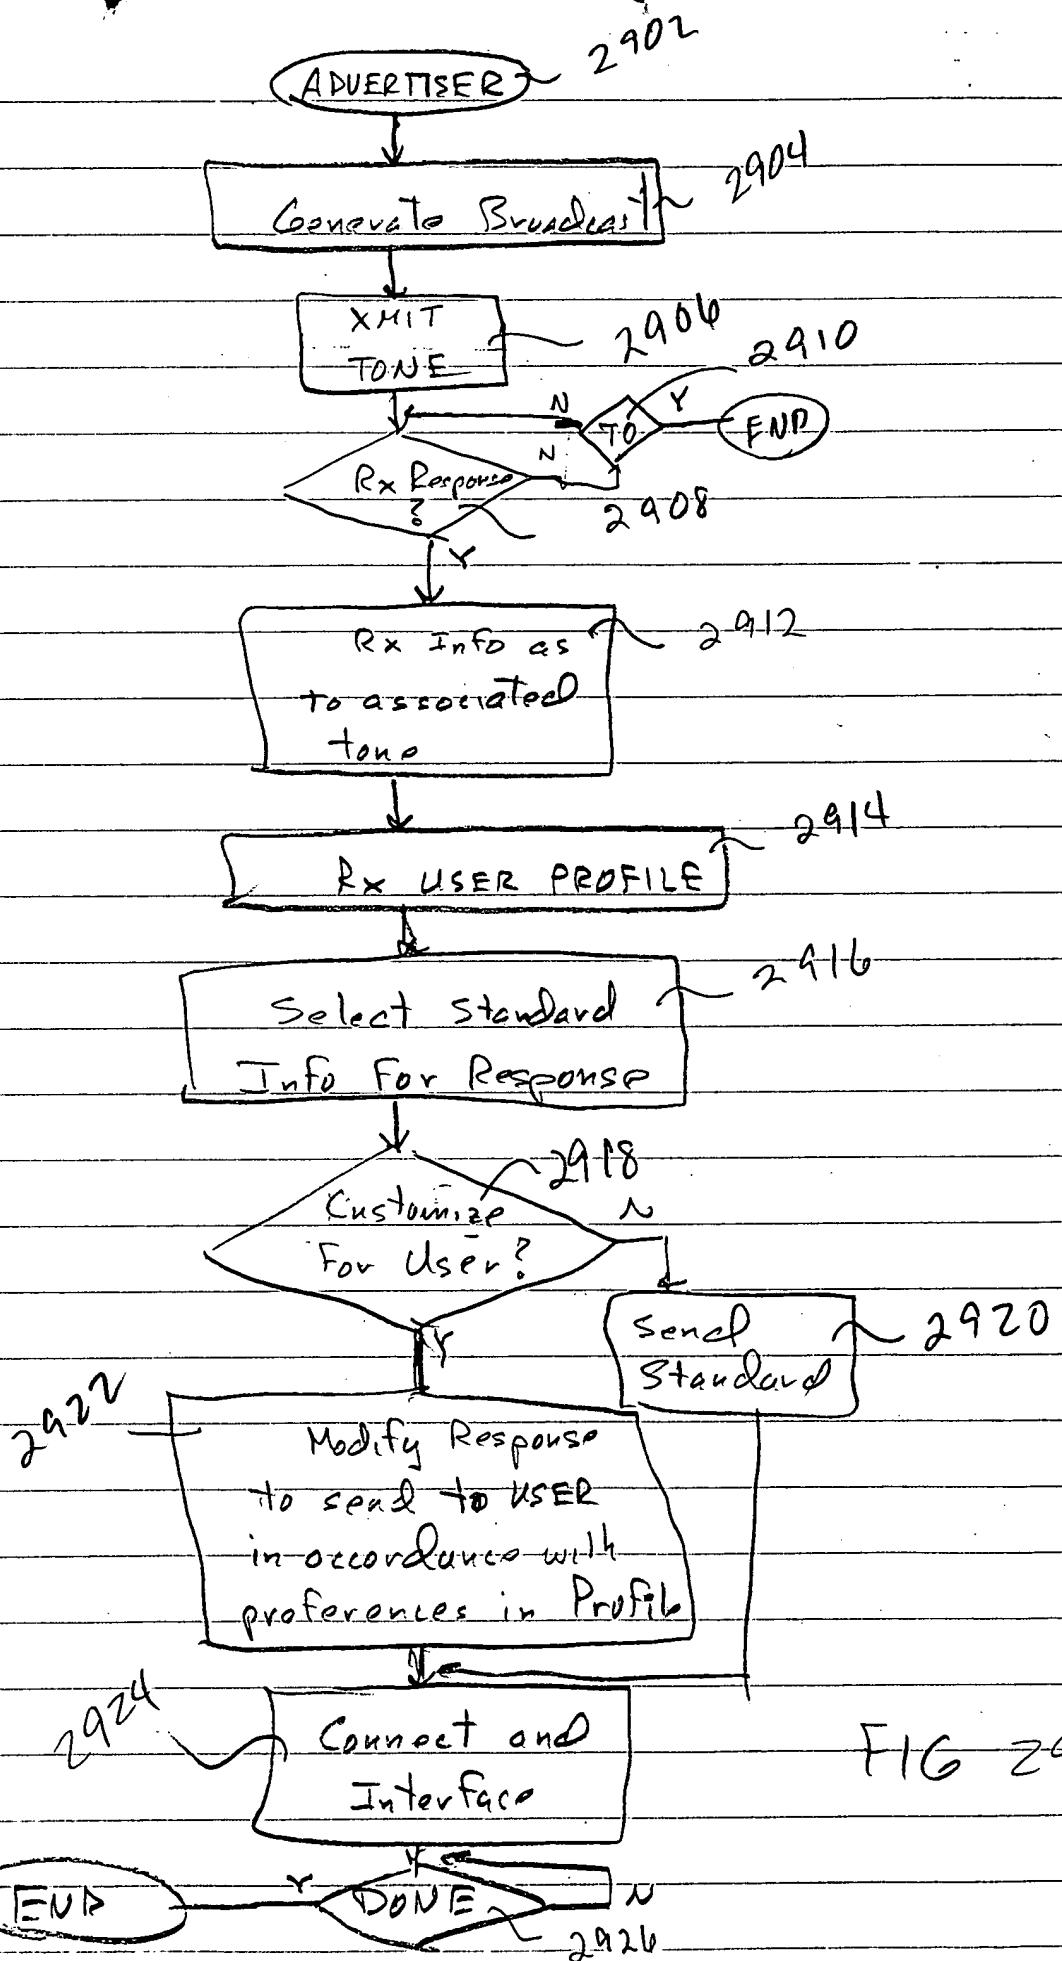 2902
ADVERTISER
2904
Generate Broadcast
XMIT
TONE
2906
2910
N
TO
Y
END
N
Rx Response
?
2908
Y
Rx Info as
to associated
tone
2912
2914
Rx USER PROFILE
2916
Select Standard
Info For Response
2918
Customize
For User?
N
Y
Send
Standard
2920
2922
Modify Response
to send to USER
in accordance with
preferences in Profile
2924
Connect and
Interface
FIG 29
END
Y
DONE
N
2926